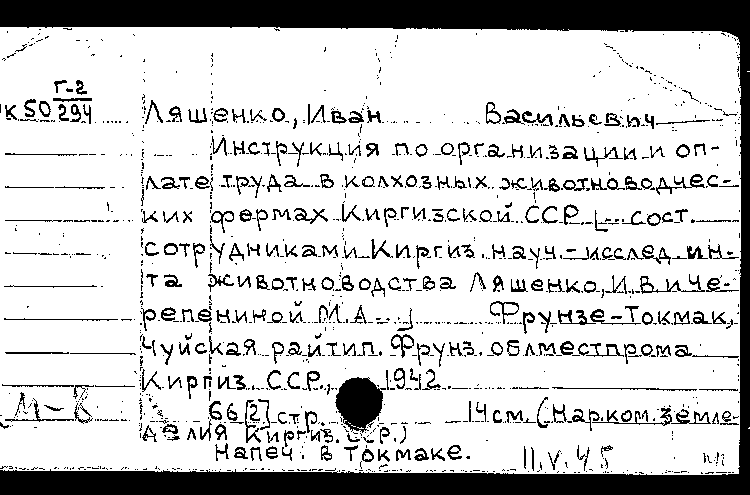 Г-2
К50 294
Ляшенко, Иван Васильевич
Инструкция по организации и оп-
лате труда в колхозных животноводчес-
ких фермах Киргизской ССР [... сост.
сотрудниками Киргиз. науч.-исслед. ин-
та животноводства Ляшенко, И.В. и Че-
репениной М.А...] Фрунзе-Токмак,
Чуйская райтип. Фрунз. облместпрома
Киргиз. ССР, 1942.
М-8
66 [2] стр. 14 см. (Нарком. земле-
делия Киргиз. ССР.)
Напеч. в Токмаке.
11.V.45